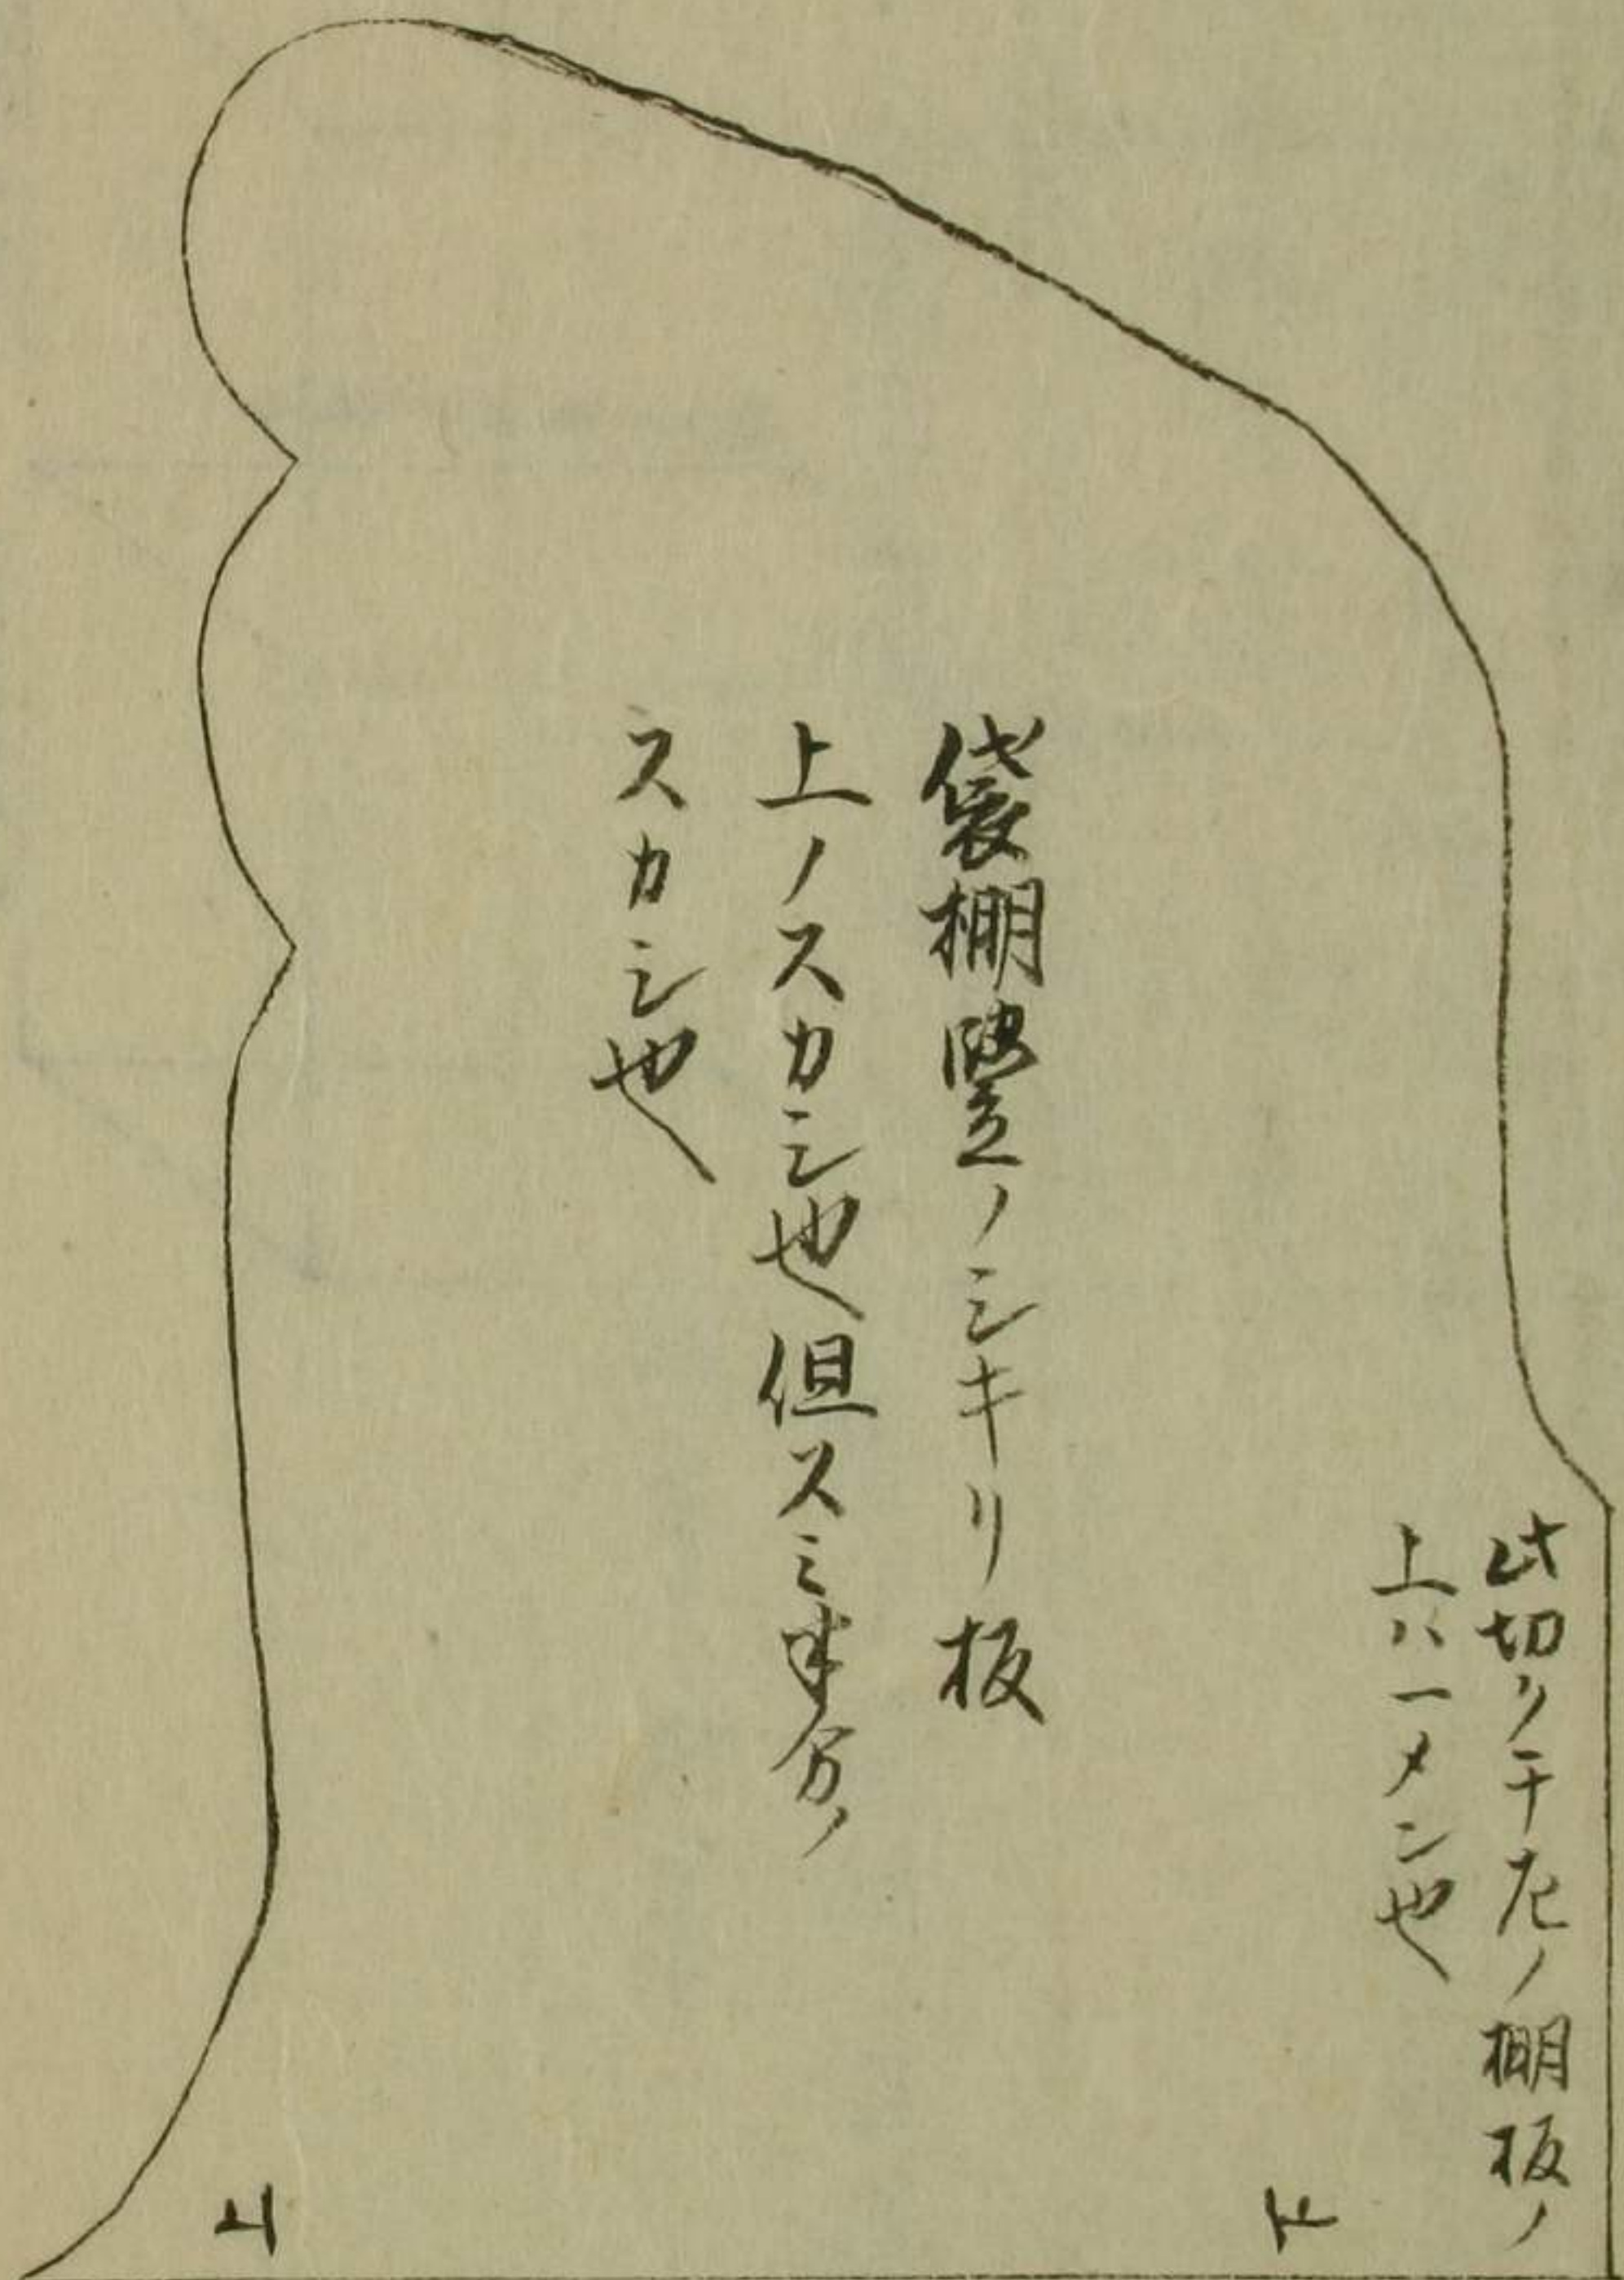 此切リテ左ノ棚板ノ
上ハ一メン也
袋棚竪ノシキリ板
上ノスカシ也但スミ半分ノ
スカシ也
下
上